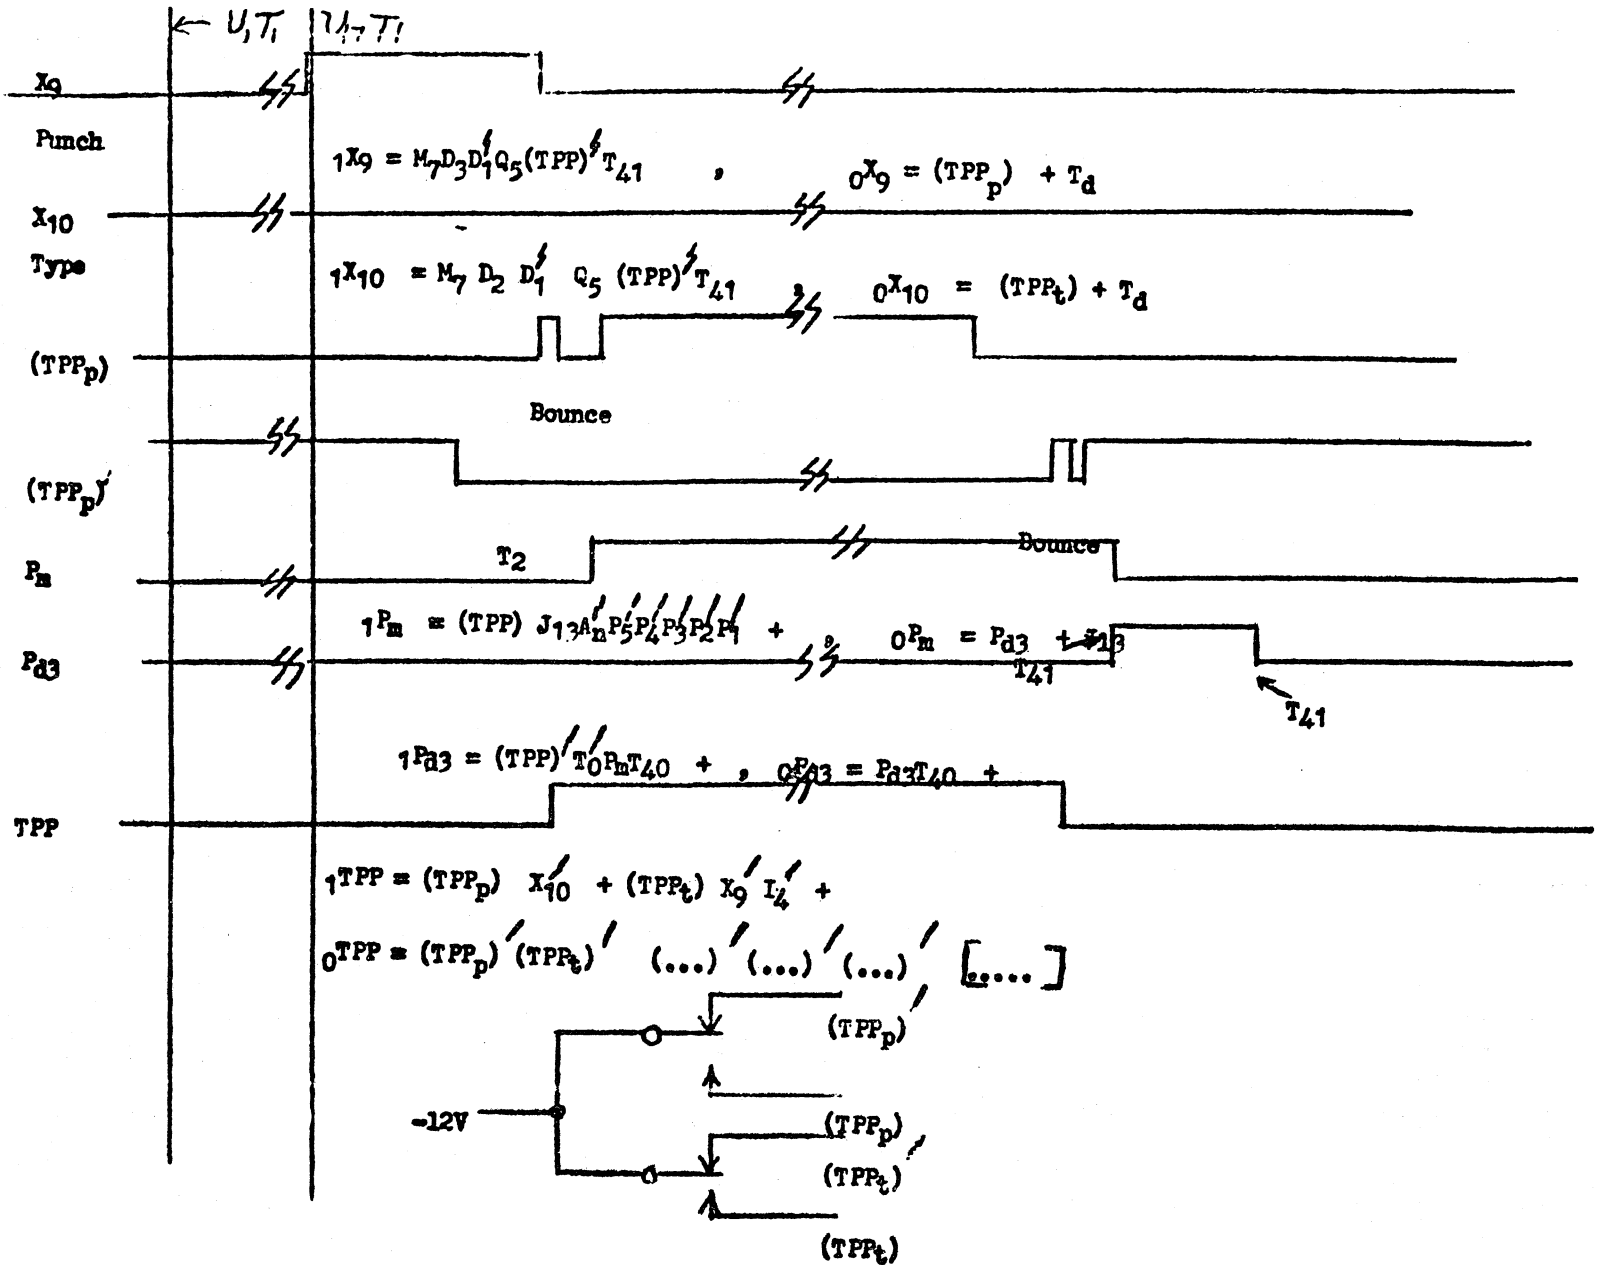 ← U₁T₁ U₁₇T₁
X₉
Punch
₁X₉ = M₇D₃D₁′Q₅(TPP)′T₄₁ , ₀X₉ = (TPPₚ) + T_d
X₁₀
Type
₁X₁₀ = M₇ D₂ D₁′ Q₅ (TPP)′T₄₁ , ₀X₁₀ = (TPPₜ) + T_d
(TPPₚ)
Bounce
(TPPₚ)′
Bounce
T₂
Pₘ
₁Pₘ = (TPP) J₁₃Aₙ′P₅′P₄′P₃′P₂′P₁′ + , ₀Pₘ = P_d3 +
T₄₁
P_d3
T₄₁
₁P_d3 = (TPP)′T₀′PₘT₄₀ + , ₀P_d3 = P_d3T₄₀ +
TPP
₁TPP = (TPPₚ) X₁₀′ + (TPPₜ) X₉′ I₄′ +
₀TPP = (TPPₚ)′(TPPₜ)′ (...)′(...)′(...)′ [.....]
(TPPₚ)′
-12V
(TPPₚ)
(TPPₜ)′
(TPPₜ)